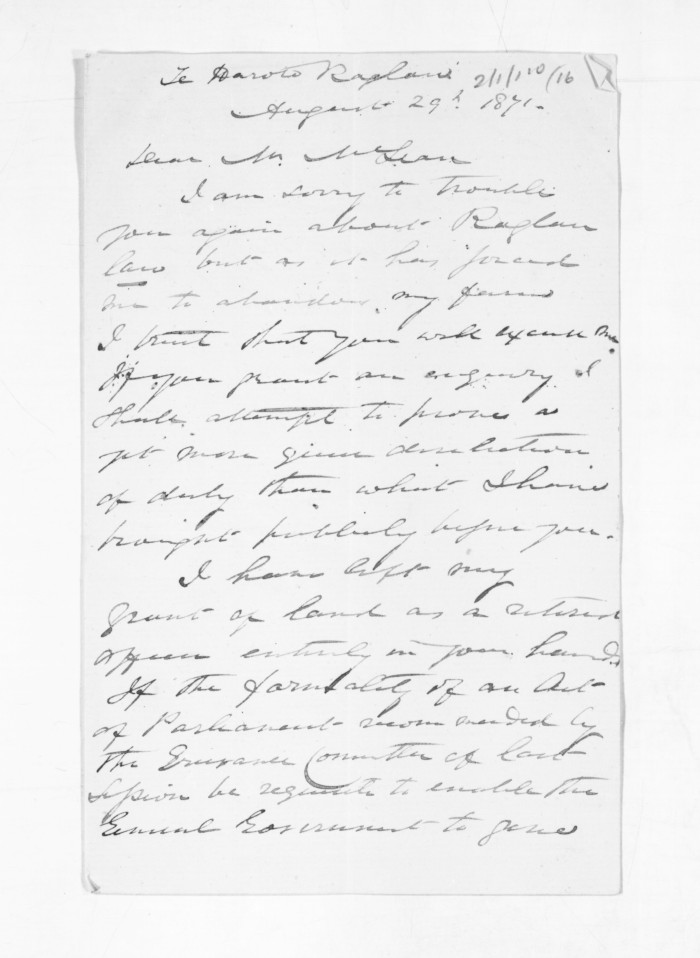 Te Haroto Raglan 2/1/110/16
August 29th. 1871.
Dear Mr. McLean
I am sorry to trouble
you again about Raglan
law but as it has forced
me to abandon my farm
I trust that you will excuse me.
If you grant an enquiry I
shall attempt to prove a
yet more grave dereliction
of duty than what I have
brought publicly before you.
I have left my
grant of land as a retired
officer entirely in your hands
If the formality of an Act
of Parliament recommended by
the Grievance Committee of last
Session be requisite to enable the
General Government to give